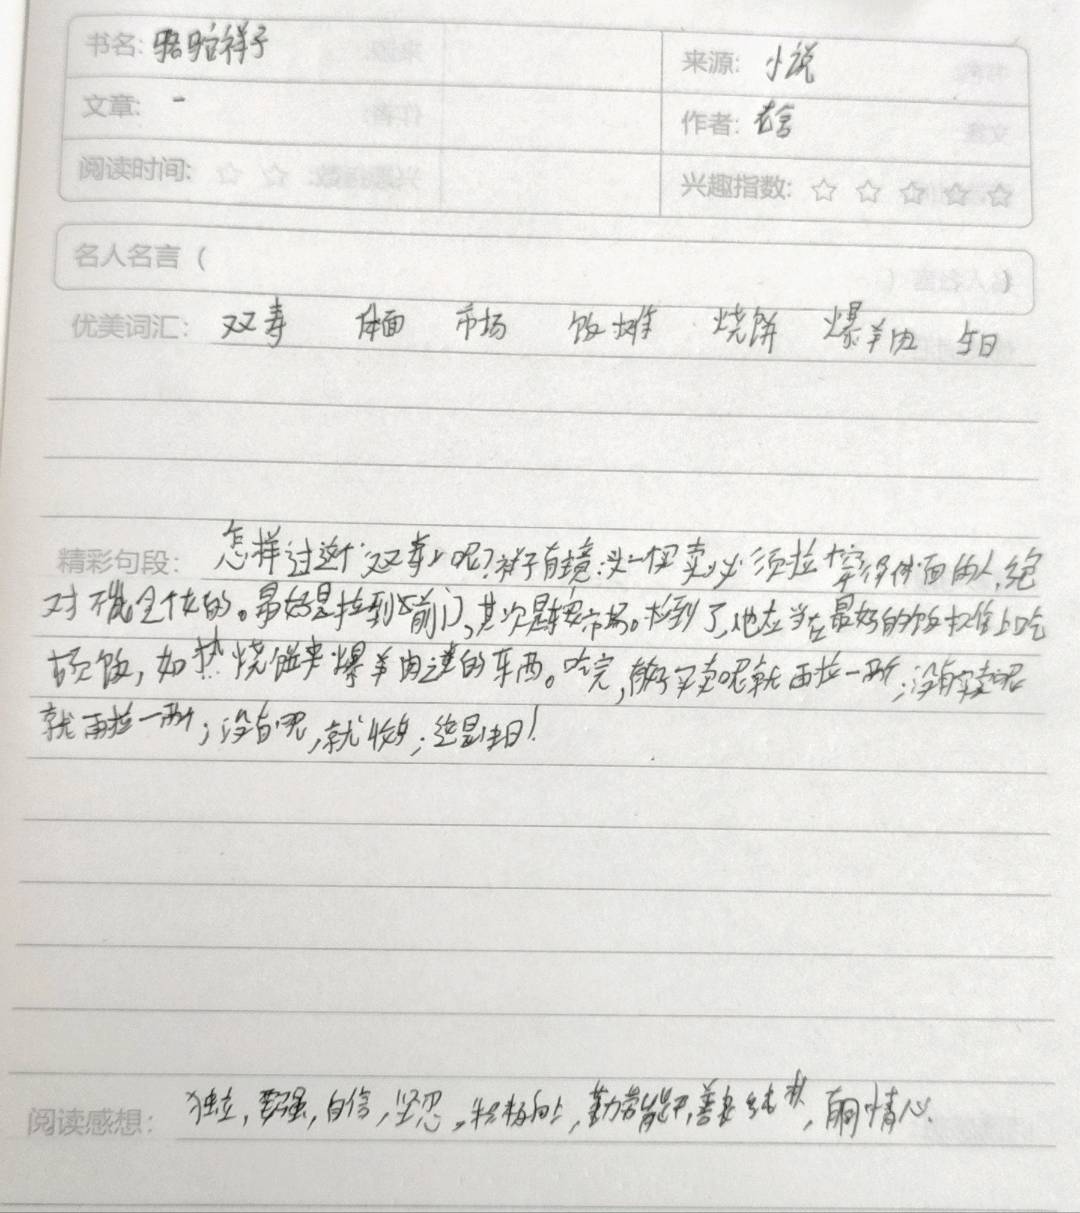 书名: 骆驼祥子 来源: 小说
文章: - 作者: 老舍
阅读时间: 兴趣指数: ☆ ☆ ☆ ☆ ☆
名人名言 ( )
优美词汇: 双寿 体面 市场 饭摊 烧饼 爆羊肉 生日
精彩句段: 怎样过这个“双寿”呢?祥子有主意:头一个买卖必须拉个穿得体面的人,绝
对不能是个女的。最好是拉到前门,其次是东安市场。拉到了,他应当在最好的饭摊上吃
顿饭,如热烧饼夹爆羊肉之类的东西。吃完,有好买卖呢就再拉一两个;没有买卖呢
就再拉一两个;没有呢,就收车;这是生日!
阅读感想: 独立,要强,自信,坚忍,积极向上,勤劳能干,善良,有同情心.